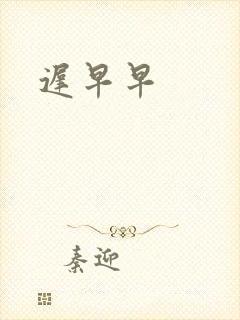 遲早早
秦迎